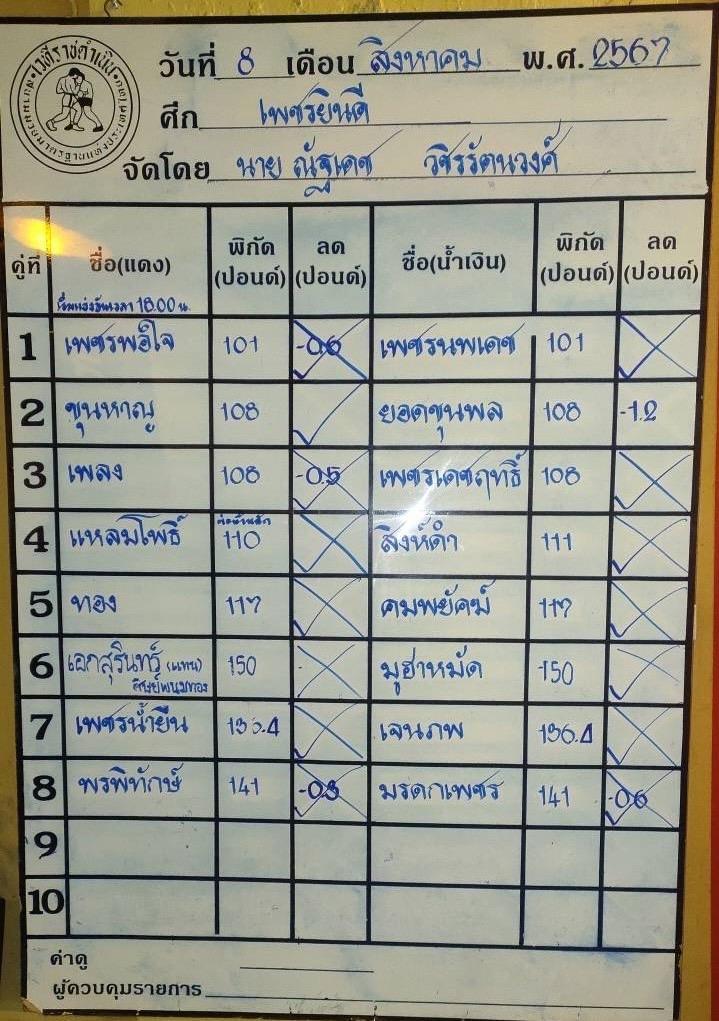 เวทีราชดำเนิน
วันที่ 8 เดือน สิงหาคม พ.ศ. 2567
ศึก เพชรยินดี
จัดโดย นาย ณัฐเดช วชิรรัตนวงศ์
คู่ที่ ชื่อ(แดง) พิกัด (ปอนด์) ลด (ปอนด์) ชื่อ(น้ำเงิน) พิกัด (ปอนด์) ลด (ปอนด์)
18.00 น.
1 เพชรพอใจ 101 -0.6 เพชรนพเดช 101
2 ขุนหาญ 108 ยอดขุนพล 108 -1.2
3 เพลง 108 -0.5 เพชรเดชฤทธิ์ 108
4 แหลมโพธิ์ 110 สิงห์ดำ 111
5 ทอง 117 คมพยัคฆ์ 117
6 เอกสุรินทร์ (แทน) 150 มูฮาหมัด 150
ศิษย์พนมทอง
7 เพชรน้ำยืน 136.4 เจนภพ 136.4
8 พรพิทักษ์ 141 มรดกเพชร 141 -0.6
9
10
ค่าดู
ผู้ควบคุมรายการ